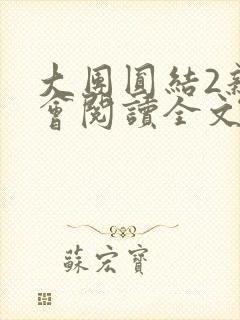 大團圓結2
會閱讀全文
蘇宏寶